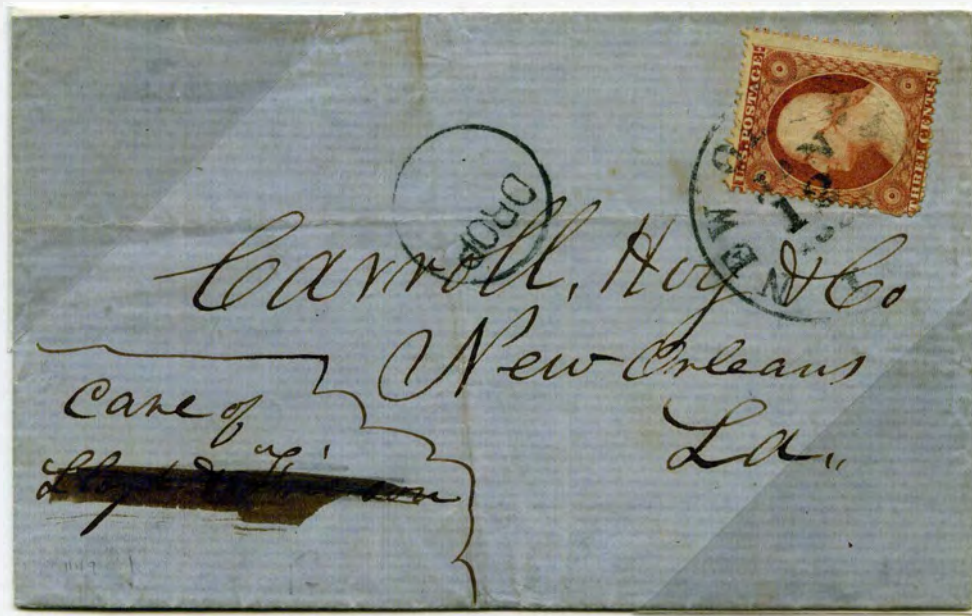 U.S. POSTAGE
THREE CENTS
DROP
1
NEW
NOV
Carroll, Hoy & Co
New Orleans
La,,
Care of